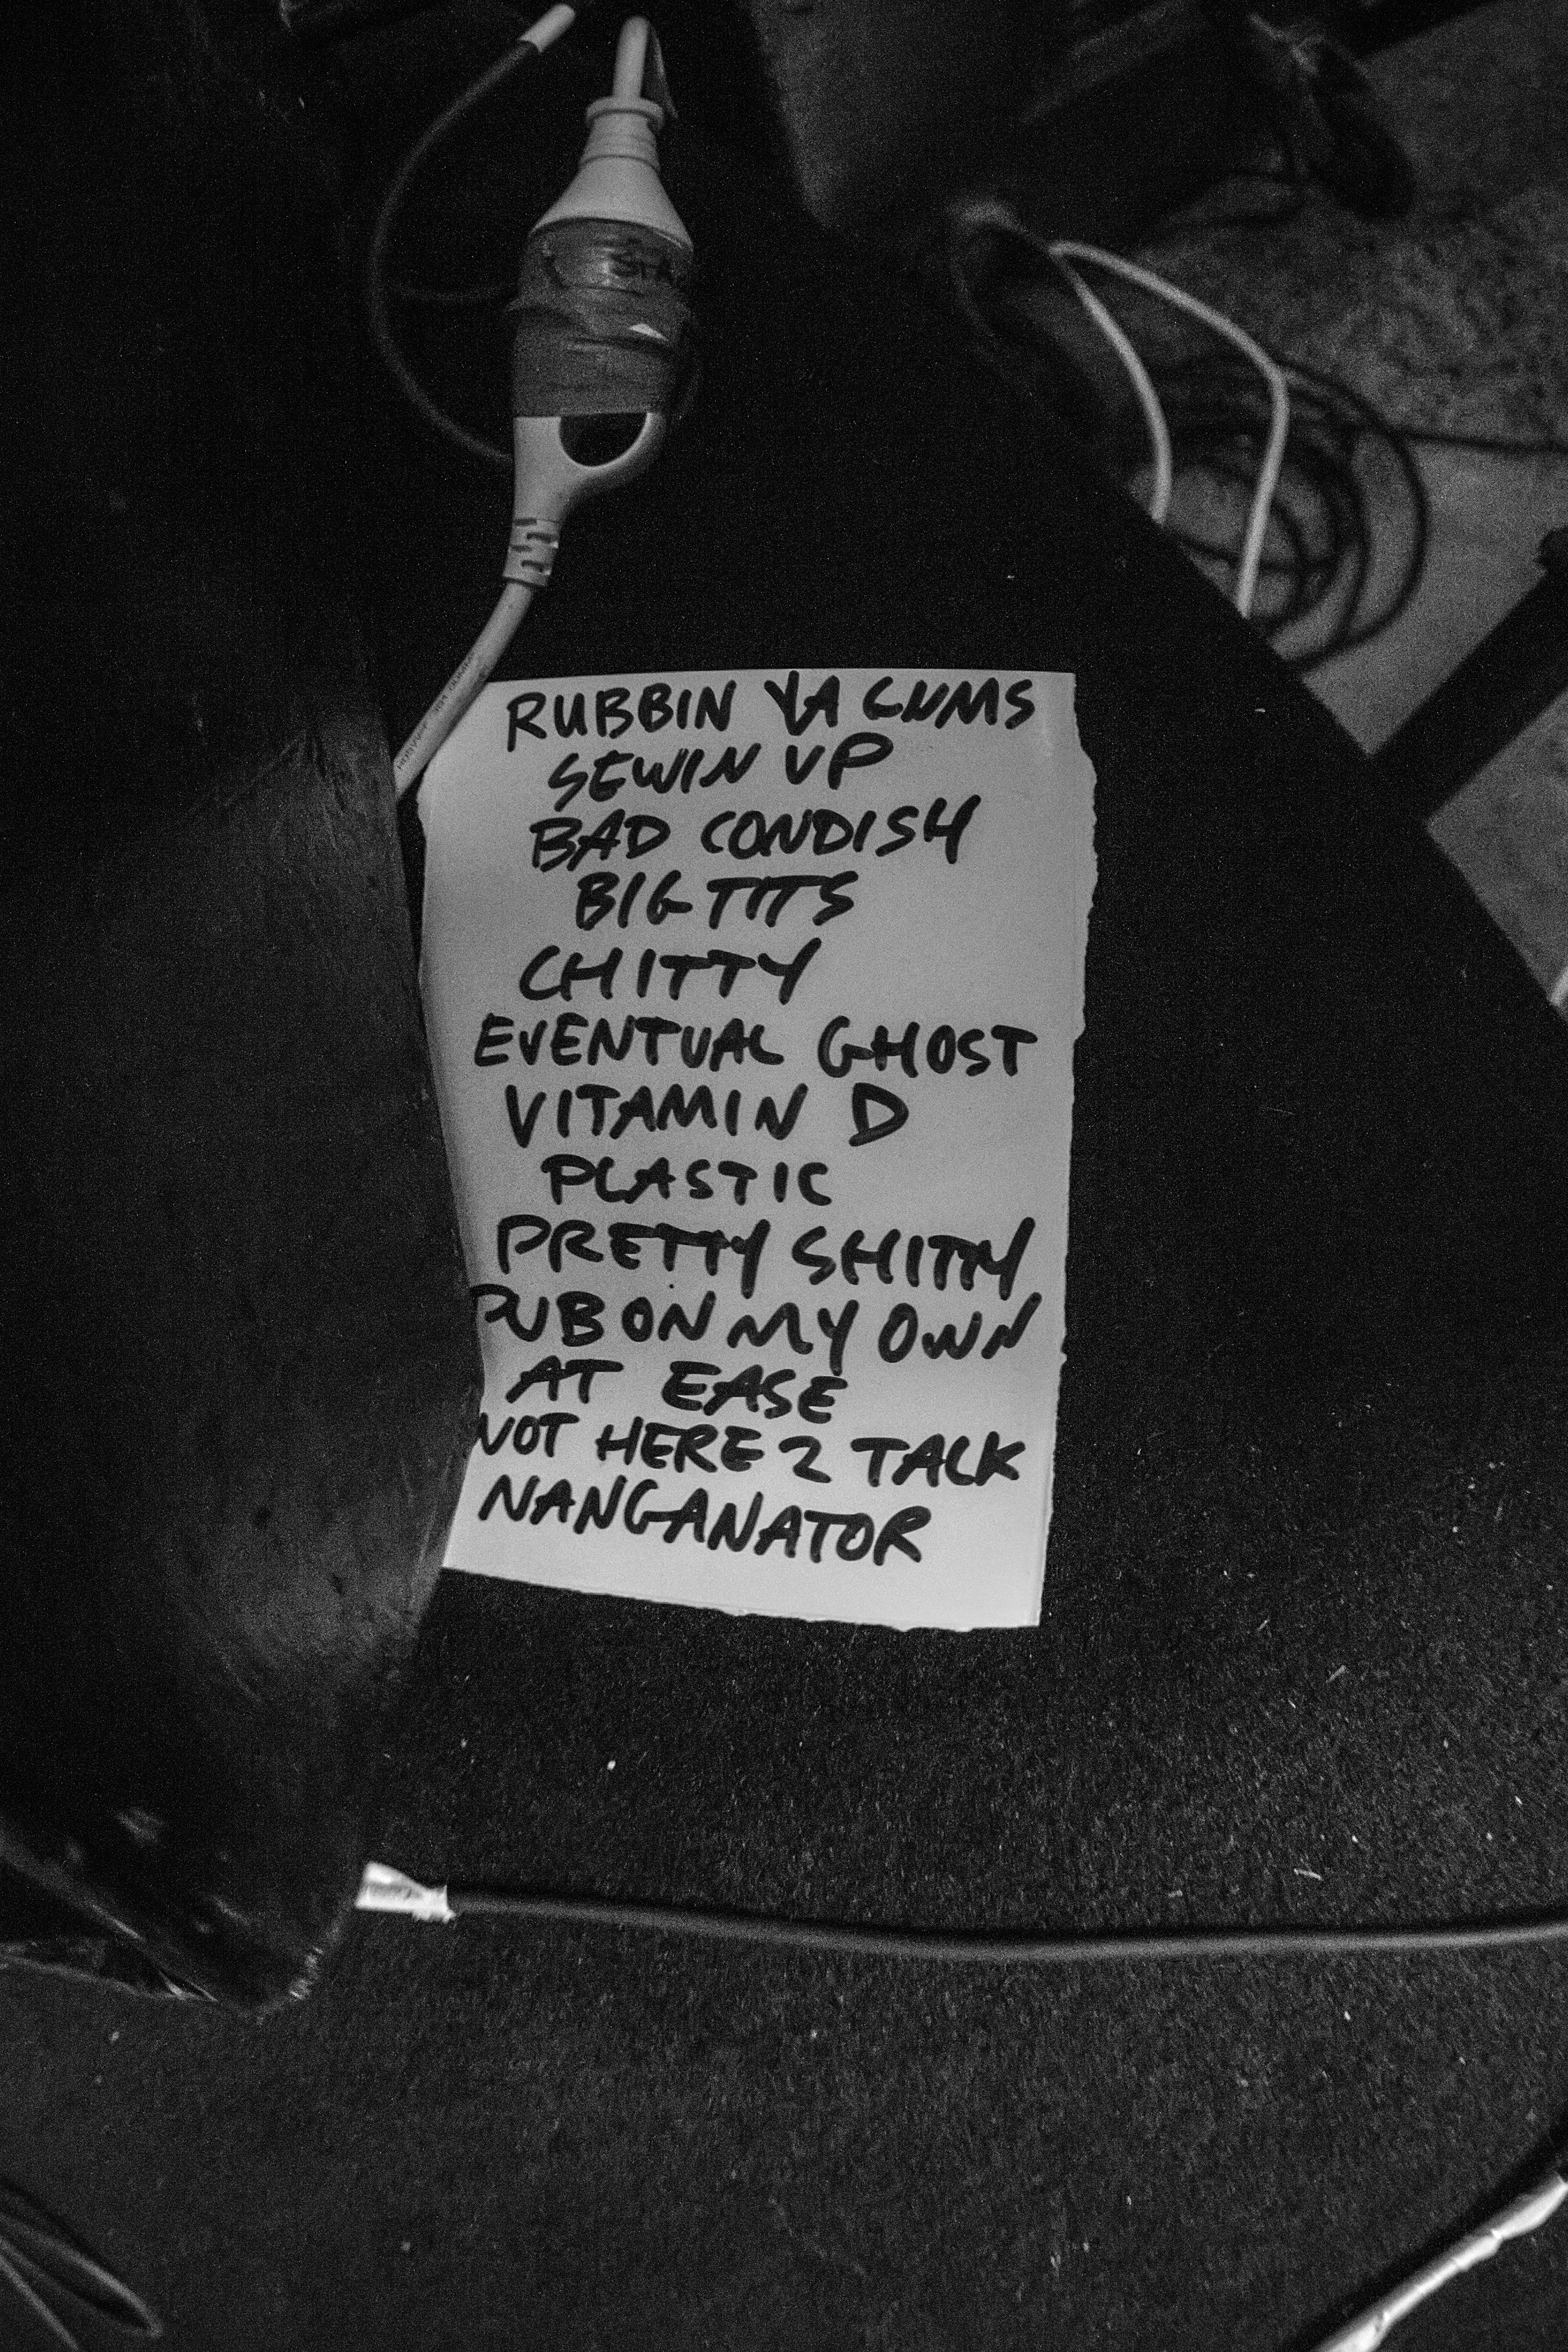 RUBBIN YA GUMS
SEWIN UP
BAD CONDISH
BIG TITS
CHITTY
EVENTUAL GHOST
VITAMIN D
PLASTIC
PRETTY SHITTY
PUB ON MY OWN
AT EASE
NOT HERE 2 TALK
NANGANATOR